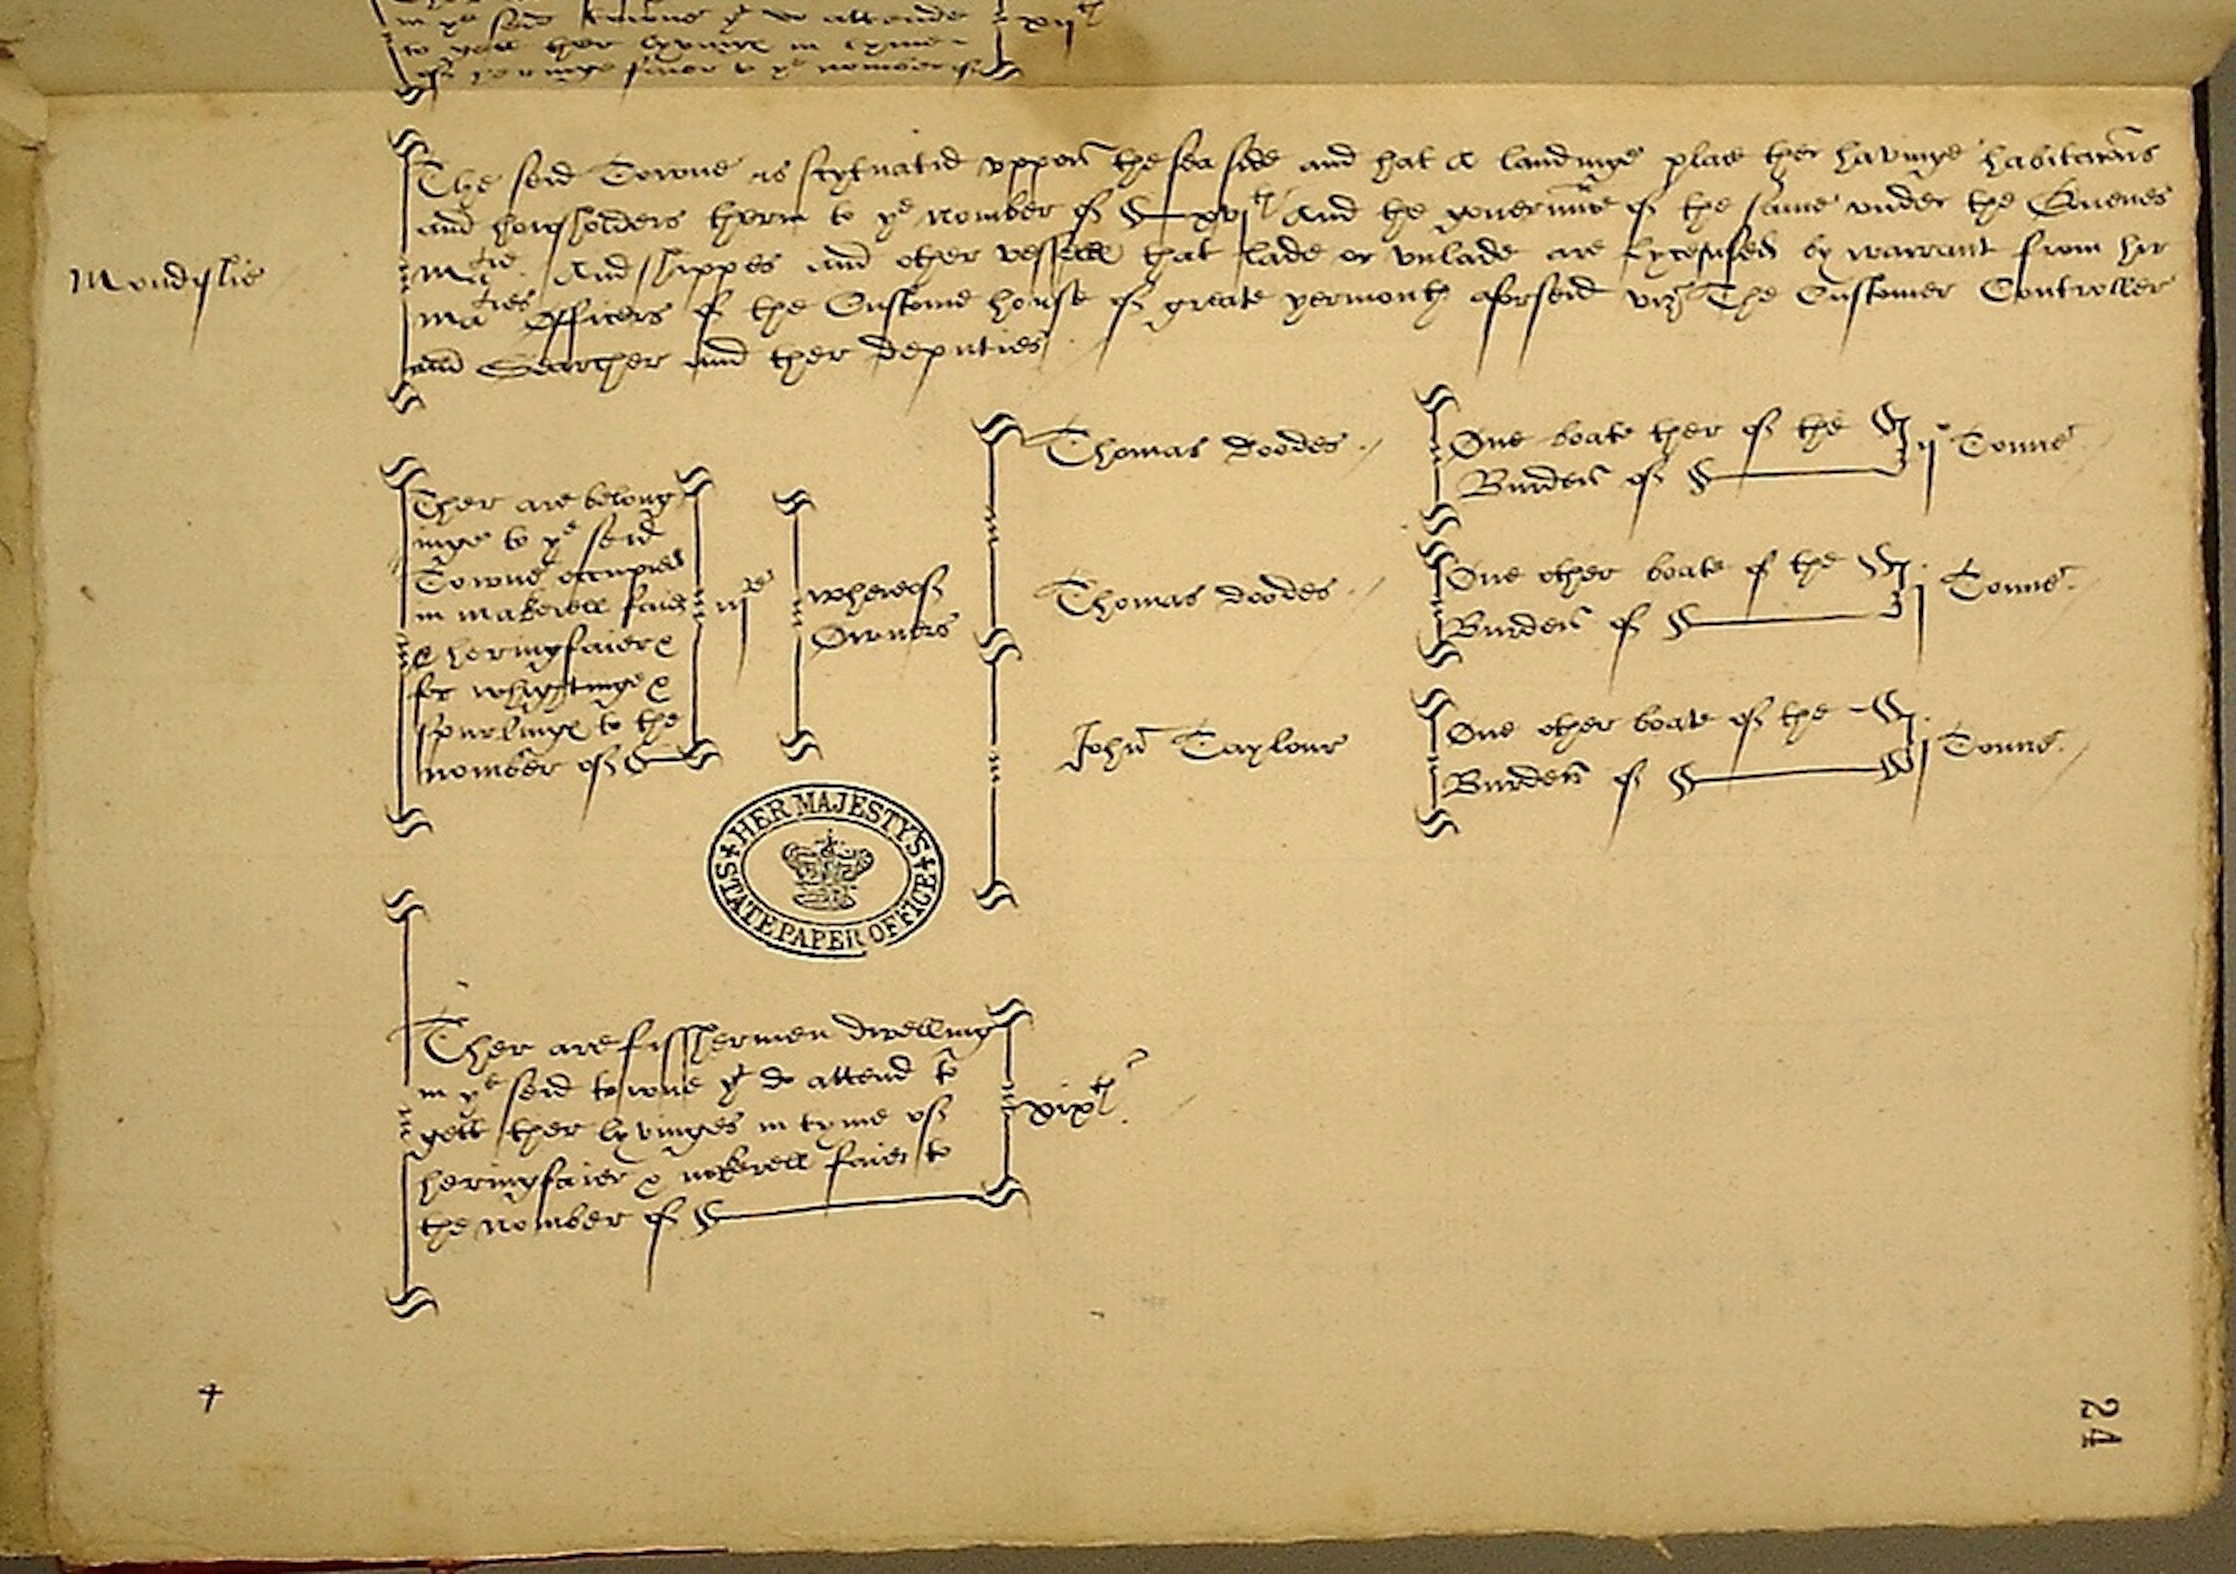 in ye seid towne yt do attende
to gett ther lyvinges in tyme
of heringe faier to ye nomber of
xijth
Mondislie
The seid Towne is scytuatid vppon the sea side and hat a landinge place ther havinge habitanns
and howsholders therin to ye nomber of xvjth And the governaunce of the same vnder the Quenes
Matie. And shippes and other vessell that lade or vnlade are lycensed by warrant from hir
Maties Officers of the Custome house of greate yermouth aforseid viz The Customer Controller
and Searcher and ther deputies
Ther are belong
inge to ye seid
Towne occupied
in makerell faier
& heringfaier &
for whightinge &
spurlinge to the
nomber of
iijre
whereof
Owners
Thomas Doodes
One boate ther of the
Burden of
ij Tonne
Thomas Doodes
One other boate of the
Burden of
j Tonne
John Taylour
One other boate of the
Burden of
j Tonne
HER MAJESTY'S STATE PAPER OFFICE
Ther are fisshermen dwelling
in ye seid towne yt do attend to
gett ther lyvinges in tyme of
heringfaier & makerell faier to
the nomber of
xixth
24